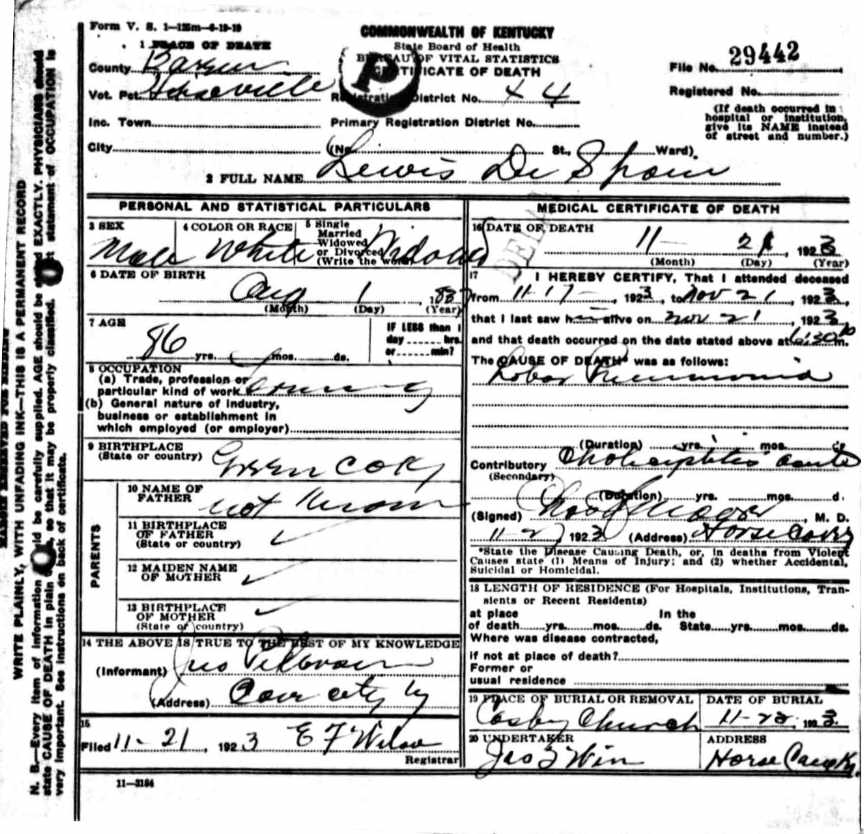 Form V. S. 1—125m—6-19-19
COMMONWEALTH OF KENTUCKY
State Board of Health
BUREAU OF VITAL STATISTICS
CERTIFICATE OF DEATH
P
File No. 29442
Registered No.
(If death occurred in hospital or institution, give its NAME instead of street and number.)
1 PLACE OF DEATH
County Barren
Vot. Pct.
Registration District No. 44
Inc. Town
Primary Registration District No.
City (No. St., Ward)
2 FULL NAME Lewis De Spain
PERSONAL AND STATISTICAL PARTICULARS
3 SEX Male
4 COLOR OR RACE White
5 Single
Married
Widowed
or Divorced
(Write the word)
6 DATE OF BIRTH
Aug 1
(Month) (Day) (Year)
7 AGE
86 yrs. mos. ds.
IF LESS than 1
day hrs.
or min?
8 OCCUPATION
(a) Trade, profession or
particular kind of work
(b) General nature of industry,
business or establishment in
which employed (or employer)
9 BIRTHPLACE
(State or country) Green Co Ky
PARENTS
10 NAME OF
FATHER not known
11 BIRTHPLACE
OF FATHER
(State or country) ✓
12 MAIDEN NAME
OF MOTHER ✓
13 BIRTHPLACE
OF MOTHER
(State or country) ✓
14 THE ABOVE IS TRUE TO THE BEST OF MY KNOWLEDGE
(Informant)
(Address) Cave city Ky
15
Filed 11-21, 1923 E F Wilson
Registrar
11—3184
MEDICAL CERTIFICATE OF DEATH
16 DATE OF DEATH
11- 21, 1923
(Month) (Day) (Year)
17 I HEREBY CERTIFY, That I attended deceased
from 11-17-, 1923, to Nov 21, 1923,
that I last saw h alive on Nov 21, 1923
and that death occurred on the date stated above at 6:30 p m.
The CAUSE OF DEATH was as follows:
Lobar Pneumonia
(Duration) yrs. mos. ds.
Contributory acute
(Secondary)
(Duration) yrs. mos. d.
(Signed) , M. D.
1923 (Address) Horse Cave Ky
*State the Disease Causing Death, or, in deaths from Violent
Causes state (1) Means of Injury; and (2) whether Accidental,
Suicidal or Homicidal.
18 LENGTH OF RESIDENCE (For Hospitals, Institutions, Tran-
sients or Recent Residents)
at place In the
of death yrs. mos. ds. State yrs. mos. ds.
Where was disease contracted,
if not at place of death?
Former or
usual residence
19 PLACE OF BURIAL OR REMOVAL
Cosby Church
DATE OF BURIAL
11-22, 1923
20 UNDERTAKER
ADDRESS
Horse Cave Ky.
WRITE PLAINLY, WITH UNFADING INK—THIS IS A PERMANENT RECORD
N. B.—Every item of information should be carefully supplied. AGE should be stated EXACTLY. PHYSICIANS should
state CAUSE OF DEATH in plain terms, so that it may be properly classified. Exact statement of OCCUPATION is
very important. See instructions on back of certificate.